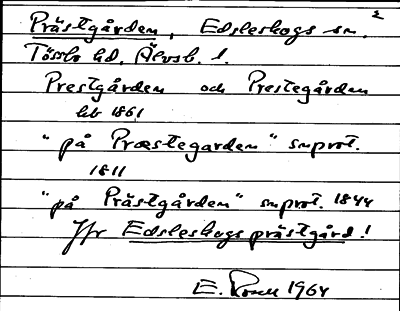 Prästgården, Edsleskogs sn. 2
Tössbo hd, Älvsb. l.
Prestgården och Prestegården
hb 1861
"på Præstegarden" snprot.
1811
"på Prästgården" snprot. 1844
Jfr Edsleskogs prästgård!
E. 1964